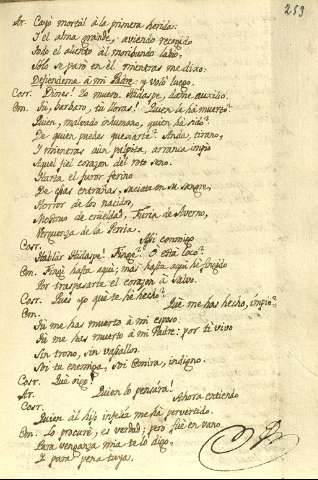 253
Ar. Cayó mortal á la primera herida:
Y el alma grande, aviendo recogido
Todo el aliento al moribundo labio,
Sólo se paró en él mientras me dixo:
Defiendeme á mi Padre: y voló luego.
Cosr. Dioses! Yo muero. Hidaspe, dame auxilio.
Em. Tu, barbaro, tu lloras! Quien le há muerto?
Quien, malvado inhumano, quien há sido?
De quien puedes quexarte? Anda, tirano,
Y mientras aún palpita, arranca impio
Aquel fiel corazon del roto seno.
Harta el furor ferino
De esas entrañas, saciate en su sangre,
Horror de los nacidos,
Monstruo de crueldad, Furia de Averno,
Verguenza de la Persia.
Cosr. Assi conmigo
Hablas Hidaspe! Finge? O está loco?
Em. Fingi hasta aqui; mas hasta aqui hé fingido
Por traspasarte el corazon á Salvo.
Cosr. Pues yo qué te hé hecho?
Em. Qué me has hecho, impio?
Tu me has muerto á mi esposo:
Tu me has muerto á mi Padre: por ti vivo
Sin trono, sin vasallos.
Soi tu enemiga, Soi Emira, indigno.
Cosr. Qué oigo!
Ar. Quien lo pensára!
Cosr. Ahora entiendo
Quien al hijo infeliz me há pervertido.
Em. Lo procuré, es verdad; pero fué en vano.
Para venganza mia te lo digo,
Y para pena tuya.